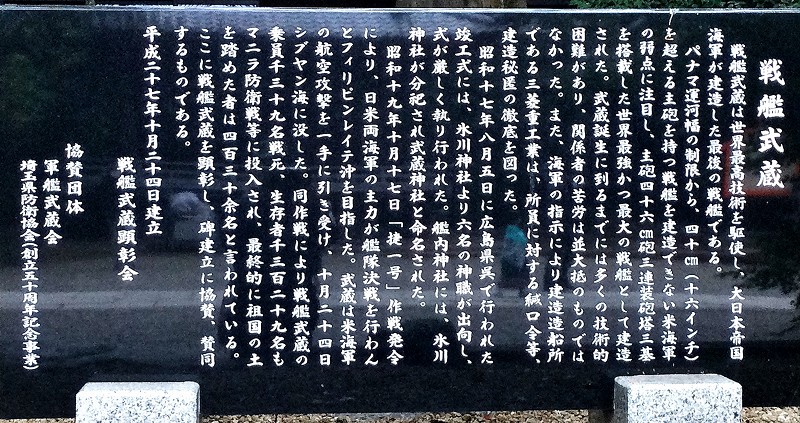 戦艦武蔵
戦艦武蔵は世界最高技術を駆使し、大日本帝国
海軍が建造した最後の戦艦である。
パナマ運河幅の制限から、四十cm(十六インチ)
を超える主砲を持つ戦艦を建造できない米海軍
の弱点に注目し、主砲四十六cm砲三連装砲塔三基
を搭載した世界最強かつ最大の戦艦として建造
された。武蔵誕生に到るまでには多くの技術的
困難があり、関係者の苦労は並大抵のものでは
なかった。また、海軍の指示により建造造船所
である三菱重工業は、所員に対する緘口令等、
建造秘匿の徹底を図った。
昭和十七年八月五日に広島県呉で行われた
竣工式には、氷川神社より六名の神職が出向し、
式が厳しく執り行われた。艦内神社には、氷川
神社が分祀され武蔵神社と命名された。
昭和十九年十月十七日「捷一号」作戦発令
により、日米両海軍の主力が艦隊決戦を行わん
とフィリピンレイテ沖を目指した。武蔵は米海軍
の航空攻撃を一手に引き受け、十月二十四日
シブヤン海に没した。同作戦により戦艦武蔵の
乗員千三十九名戦死、生存者千三百二十九名も
マニラ防衛戦等に投入され、最終的に祖国の土
を踏めた者は四百三十余名と言われている。
ここに戦艦武蔵を顕彰し、碑建立に協賛、賛同
するものである。
平成二十七年十月二十四日建立
戦艦武蔵顕彰会
協賛団体
軍艦武蔵会
埼玉県防衛協会(創立五十周年記念事業)